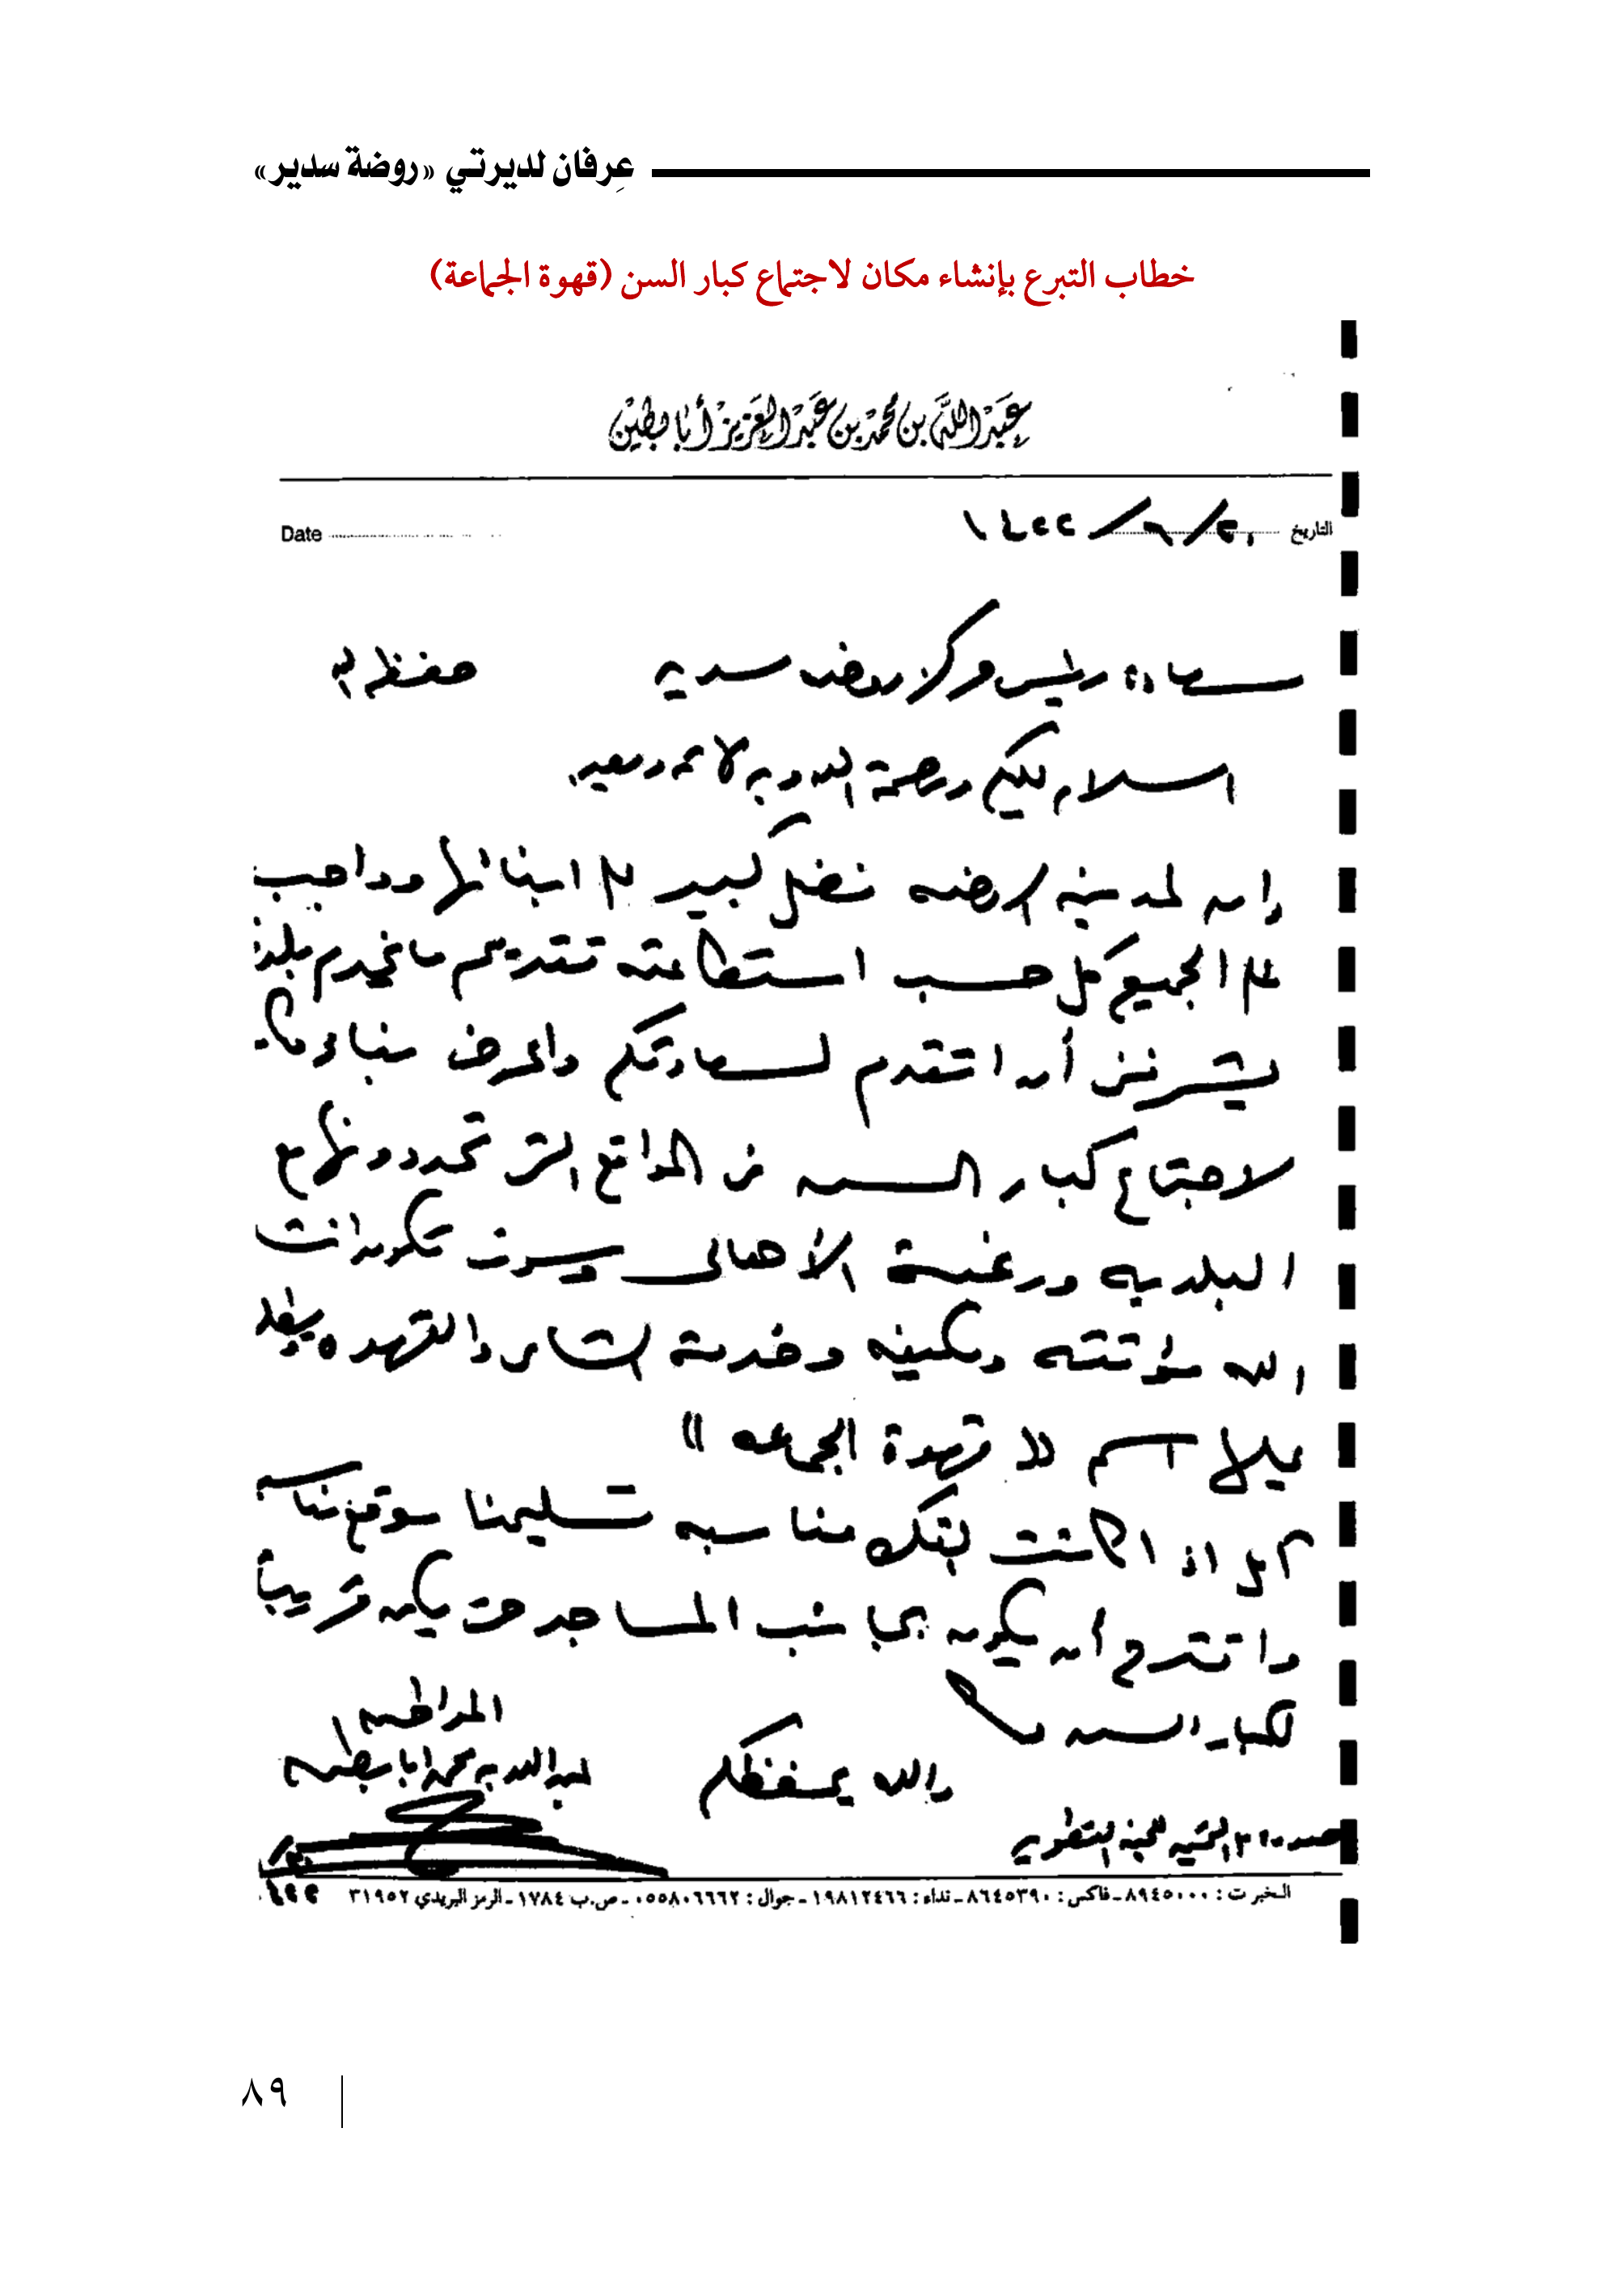 عِرفان لديرتي «روضة سدير»
خطاب التبرع بإنشاء مكان لاجتماع كبار السن (قهوة الجماعة)
عبد الله بن محمد بن عبد العزيز أبابطين
التاريخ ٢٠/٦/١٤٢٢ Date
سعادة رئيس مركز روضة سدير حفظه الله
السلام عليكم ورحمة الله وبركاته وبعد
إن لمدينة الروضة فضل كبير على ابنائها وواجب
على الجميع كل حسب استطاعته تقديم ما يخدم بلدنا
يشرفني أن اتقدم لسعادتكم والعرض ببناء مكان
لاجتماع كبار السن في المواقع التي تحددونها مع
البلديه ورغبة الأهالي وسوف تكون انشاء
الله مؤثثه ومكيفه وخدمة الشاي والقهوه ويطلق
عليها اسم «قهوة الجماعه»
آمل اذا كانت الفكره مناسبه تسليمنا موقع مناسب
واقترح أن يكون بجانب المساجد حتى يكون قريباً
لكبار السن
والله يحفظكم
المواطن
عبد الله بن محمد ابابطين
صورة الى لجنة التطوير
الـخبر ت : ٨٩٤٥٠٠٠ ـ فاكس : ٨٦٤٥٣٩٠ ـ نداء : ١٩٨١٢٤٦٦ ـ جوال : ٠٥٥٨٠٦٦٦٢ ـ ص.ب ١٧٨٤ ـ الرمز البريدي ٣١٩٥٢
٨٩